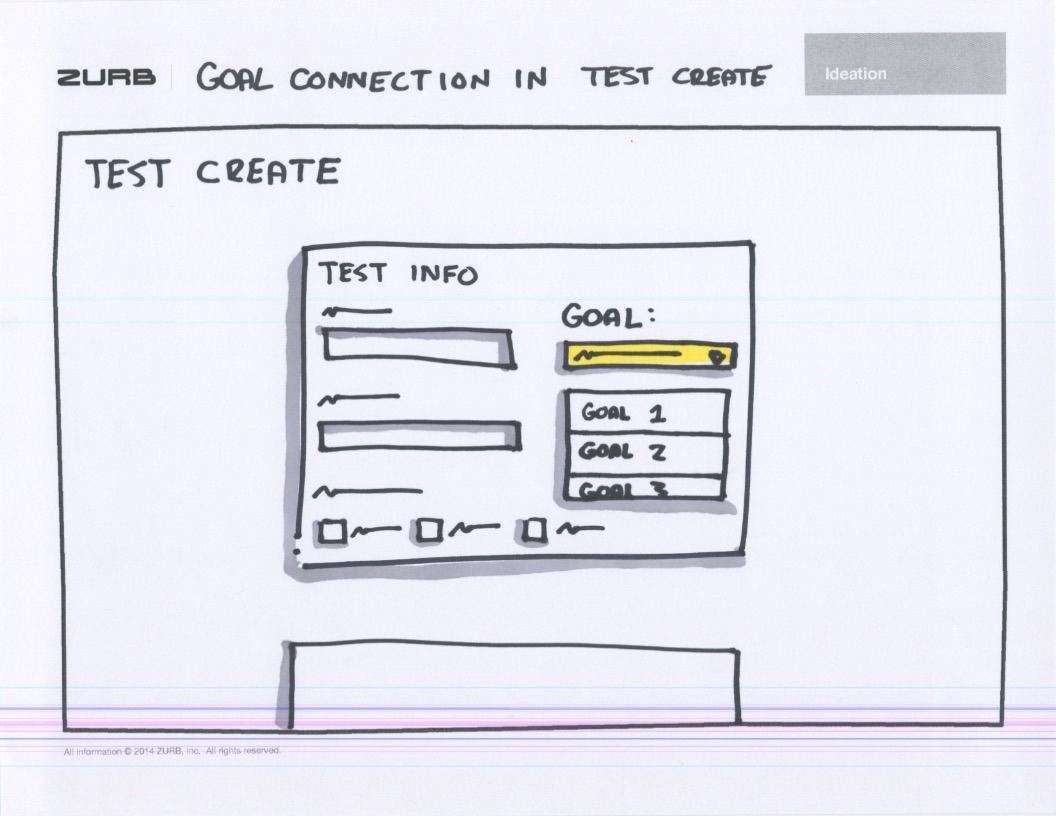 ZURB GOAL CONNECTION IN TEST CREATE
Ideation
TEST CREATE
TEST INFO
GOAL:
GOAL 1
GOAL 2
GOAL 3
All information © 2014 ZURB, Inc. All rights reserved.